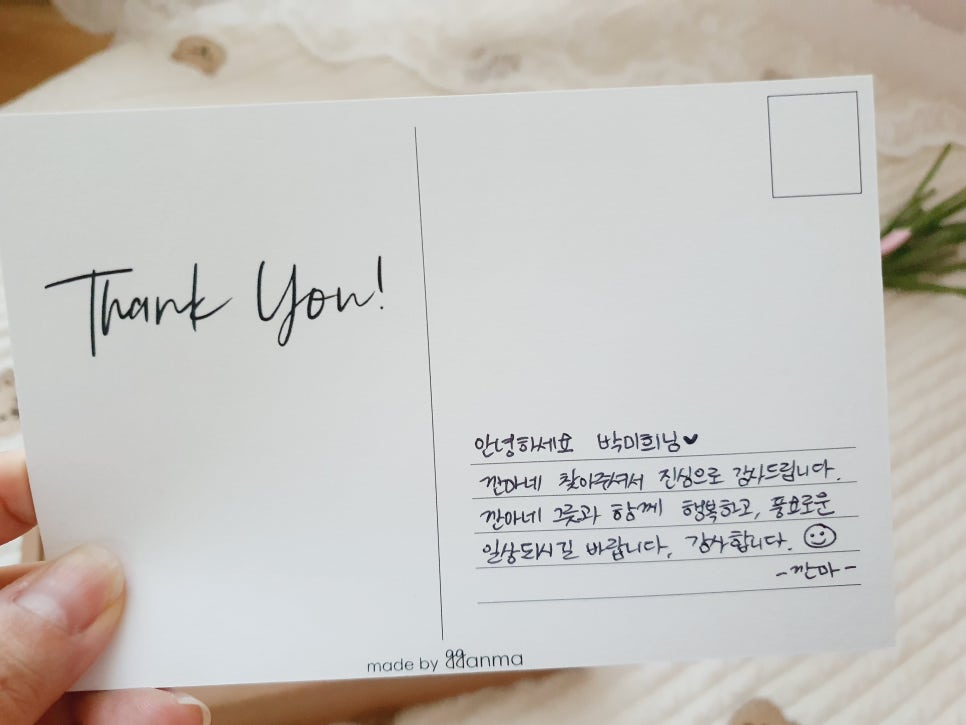 Thank You!
안녕하세요 박미희님♥
깐마네 찾아주셔서 진심으로 감사드립니다.
깐마네 그릇과 함께 행복하고, 풍요로운
일상되시길 바랍니다. 감사합니다. ☺
-깐마-
made by gganma